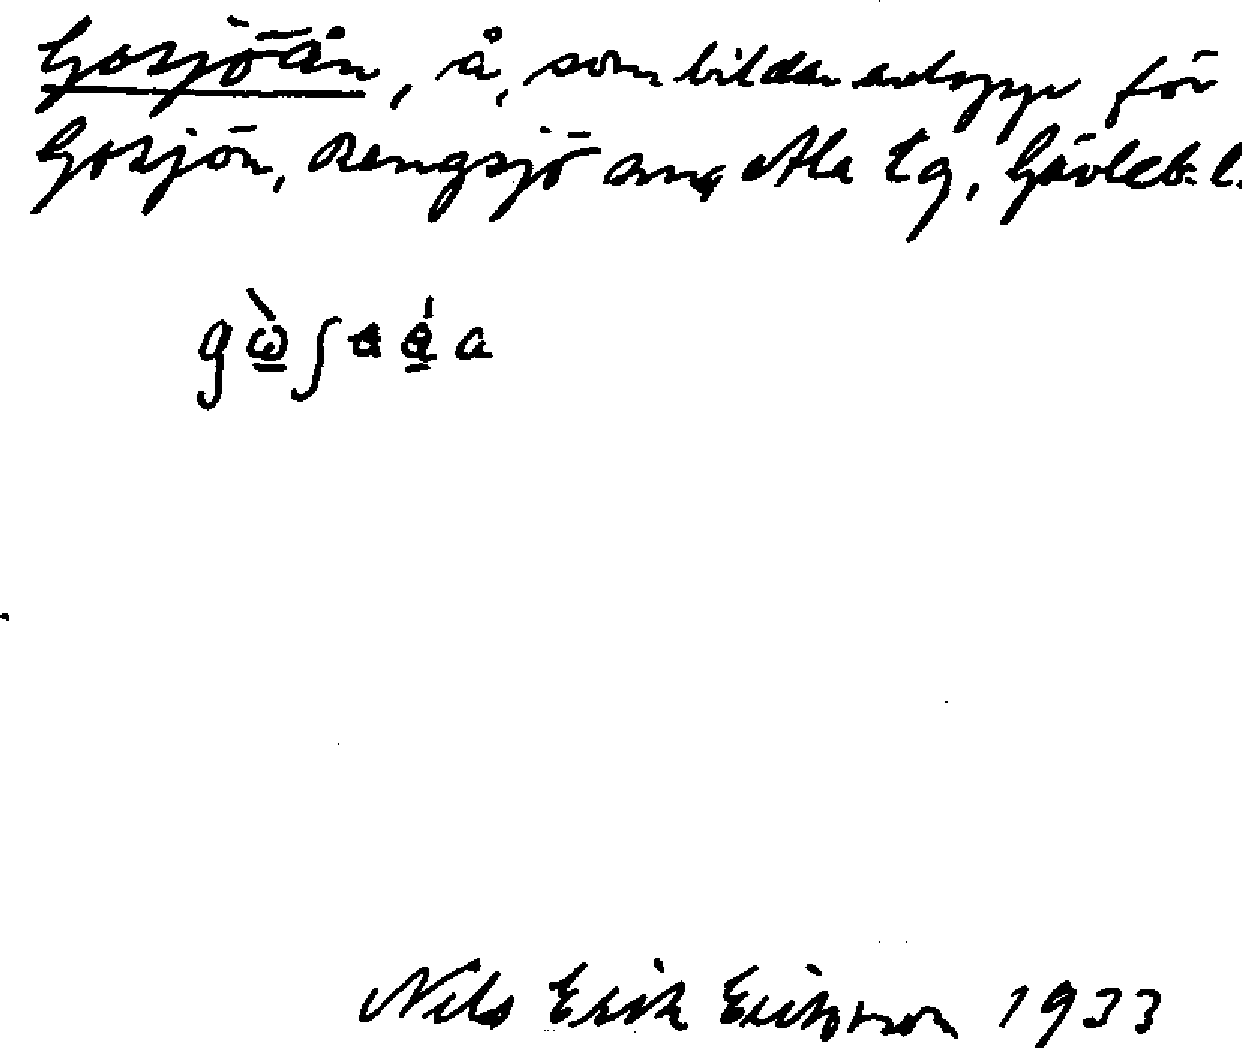 Gosjöån, å, som bildar avlopp för
Gosjön, Rengsjö sn, Ala tg, Gävleb. l.
Nils Erik Eriksson 1933